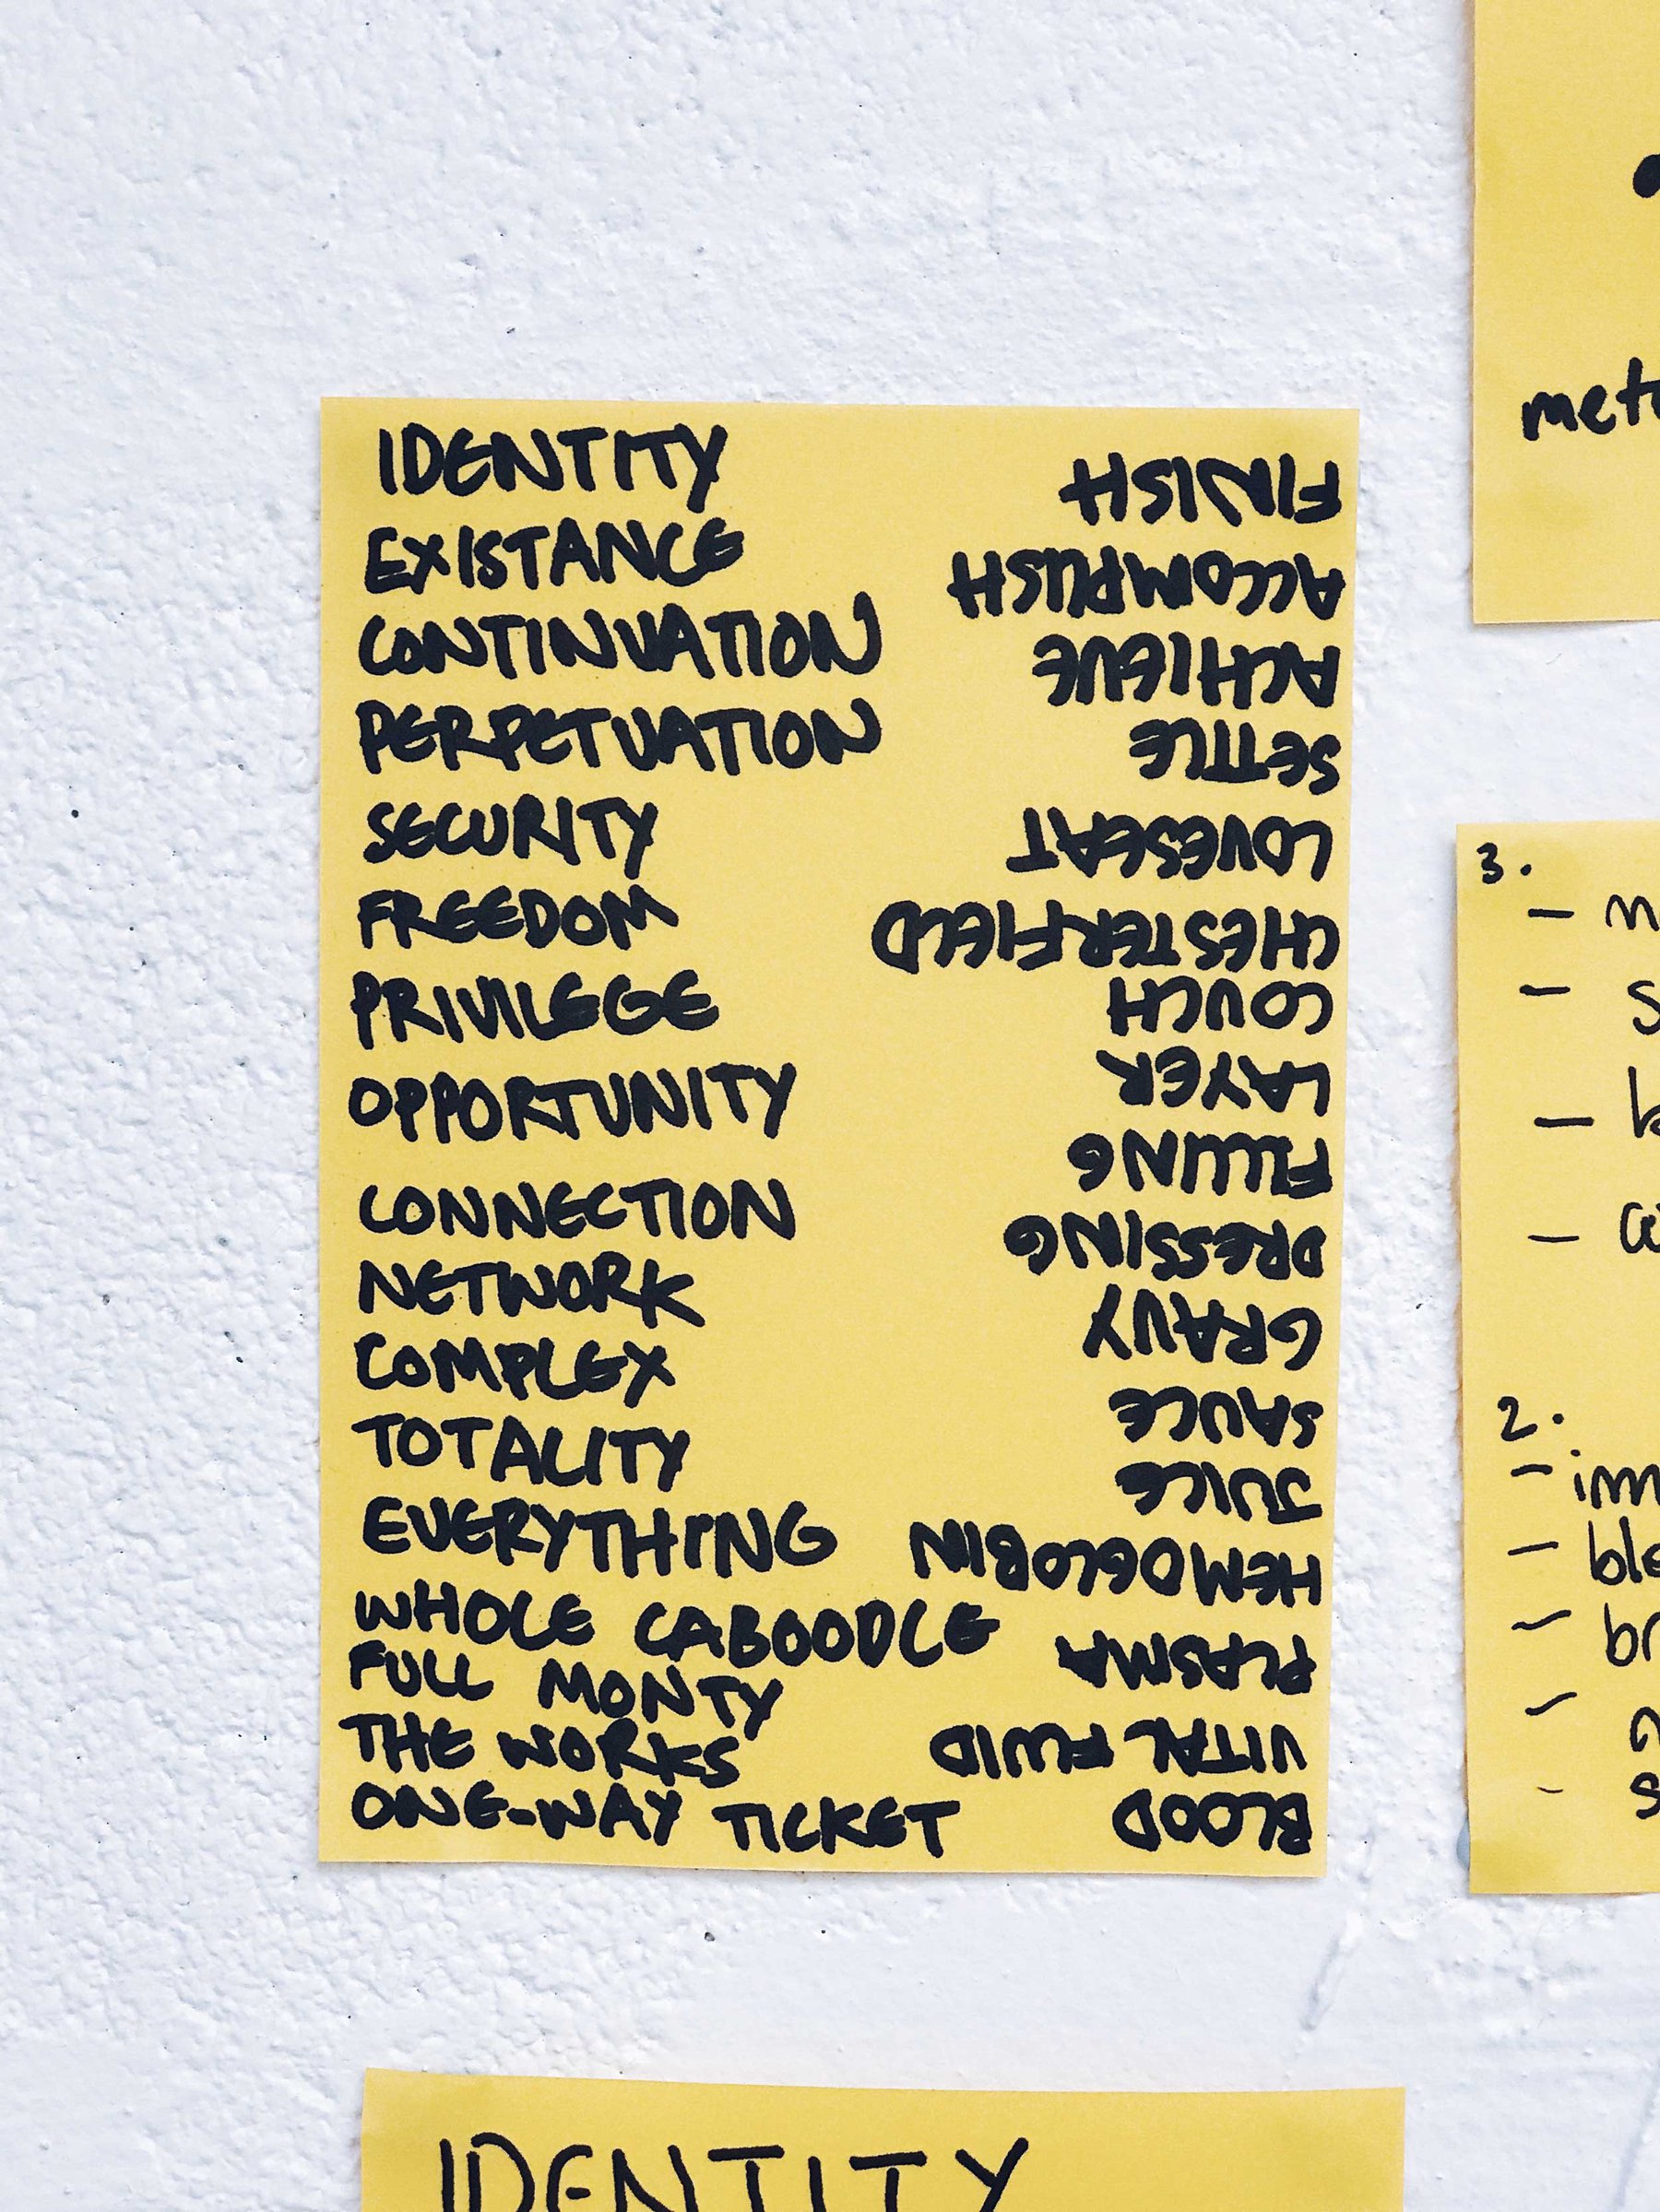 IDENTITY
EXISTANCE
CONTINUATION
PERPETUATION
SECURITY
FREEDOM
PRIVILEGE
OPPORTUNITY
CONNECTION
NETWORK
COMPLEX
TOTALITY
EVERYTHING
WHOLE CABOODLE
FULL MONTY
THE WORKS
ONE-WAY TICKET
BLOOD
VITAL FLUID
PLASMA
HEMOGLOBIN
JUICE
SAUCE
GRAVY
DRESSING
FILLING
LAYER
COUCH
CHESTERFIELD
LOVESEAT
SETTLE
ACHIEVE
ACCOMPLISH
FINISH
3.
2.
IDENTITY